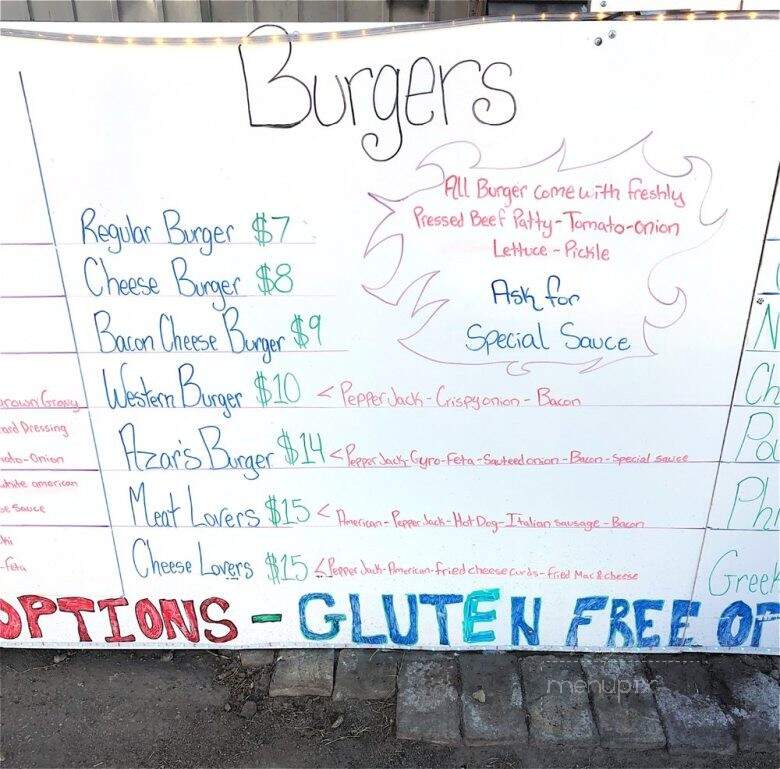 Burgers
All Burger come with freshly
Pressed Beef Patty - Tomato - onion
Lettuce - Pickle
Ask for
Special Sauce
Regular Burger $7
Cheese Burger $8
Bacon Cheese Burger $9
Western Burger $10 < Pepper Jack - Crispy onion - Bacon
Azar's Burger $14 < Pepper Jack - Gyro - Feta - Sauteed onion - Bacon - Special sauce
Meat Lovers $15 < American - Pepper Jack - Hot Dog - Italian sausage - Bacon
Cheese Lovers $15 < Pepper Jack - American - fried cheese curds - fried Mac & cheese
rown Gravy
Dressing
ato - Onion
white american
Sauce
ki
- feta
N
Ch
Po
Phi
Greek
OPTIONS - GLUTEN FREE OP
menupix